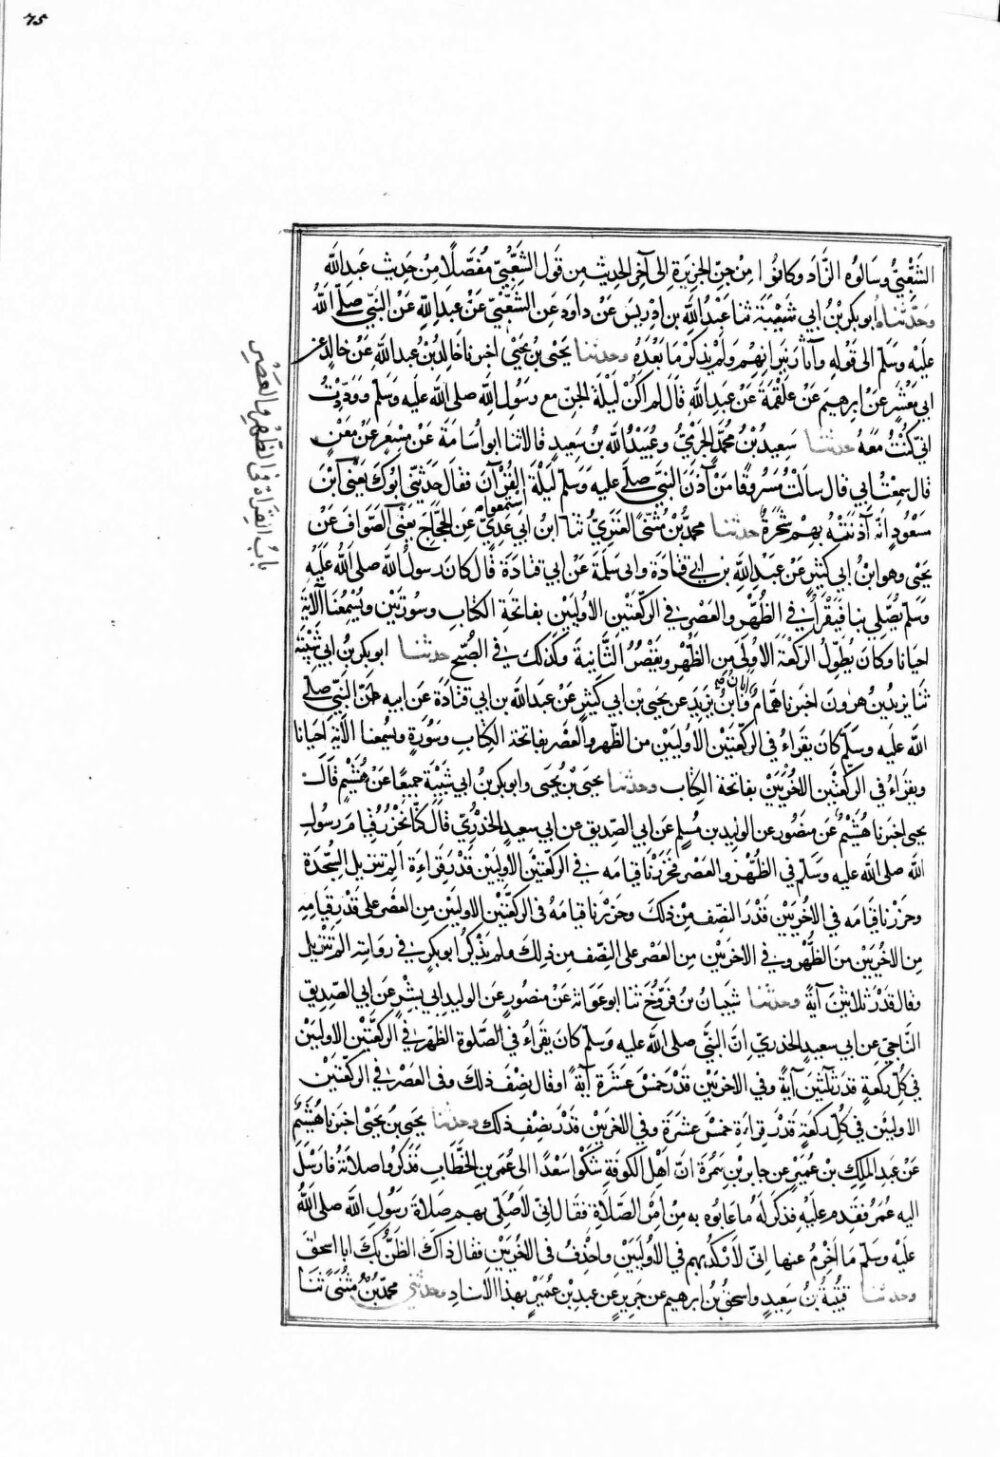 75
الشَّعْبِيُّ وسَالوُه الزَّاد وكانُوا مِنْ جِنِّ الجزِيرَةِ الى آخِر الحديث مِن قَول الشَّعْبِيِّ مُفَصَّلًا مِنْ حَدِيث عَبداللّٰه
وحَدَّثناهُ ابو بكر بْنُ ابي شَيْبَةَ ثنا عَبدُ اللّٰه بن اِدْرِيسَ عَنْ داوُدَ عَن الشَّعْبِيِّ عَنْ عبدِ اللّٰهِ عَنْ النَّبي صلى اللّٰهُ
علَيْه وسَلَّم الى قَوْلِهِ وآثارَ نيرَانِهِم وَلم يذكرْ مَا بَعْدَهُ وحدثنا يَحْيَى بنُ يَحْيَى اخبرنا خَالِدُ بْنُ عبدِ اللّٰه عَنْ خالِدٍ عن
ابي مَعْشَرٍ عَنْ ابرهِيمَ عَنْ عَلقَمَةَ عَنْ عَبدِ اللّٰه قالَ لم اَكُنْ لَيْلَةَ الجِنّ مع رسُول اللّٰه صلى اللّٰه علَيه وسَلَّم وَوَدِدْتُ
انّي كُنْتُ مَعَهُ حدثنا سَعِيدُ بْنُ مُحَمَّدٍ الجَرْمِيُّ وعُبَيْدُ اللّٰه بنُ سَعِيدٍ قالا ثنا ابو اُسَامَةَ عَنْ مِسْعَرٍ عَنْ مَعْنٍ
قال سمِعْتُ ابي قال سالْتُ مَسْرُوقًا مَنْ آذَنَ النبيَّ صلى علَيه وَسَلَّم لَيْلَةَ استَمعوا القُرْآن فقالَ حَدّثني ابُوكَ يَعْنِي ابْنَ
مَسْعُودٍ انّه آذَنَتْهُ بهِمْ شَجَرَةٌ حدثنا محمدُ بْنُ مُثَنَّى العَنَزِيُّ ثنا ابنُ ابي عَدِيٍّ عَنِ الحَجَّاج يعني الصَّوَّافَ عَنْ
يَحْيَى وهو ابنُ ابي كَثِيرٍ عَنْ عَبْدِ اللّٰهِ بن ابي قتادَة وابى سَلَمَةَ عَنْ ابي قتادَة قَال كانَ رسولُ اللّٰه صلى اللّٰه علَيْهِ
وَسَلَّم يُصَلِّي بنا فَيَقْرَأُ في الظُّهْرِ والعَصْرِ في الرَّكْعَتَيْنِ الاُولَيَيْن بفاتحَةِ الكِتاب وسُورَتَيْن ويُسْمِعُنَا الآيَةَ
احيانا وكَانَ يُطَوِّلُ الرَّكْعَةَ الاُولَى مِن الظُّهْرِ ويقَصِّرُ الثَّانِيةَ وكَذلكَ في الصُّبْح حدثنا ابو بكر بنُ ابي شَيْبَةَ
ثنا يزيدُ بن هرون اخبرنا همَّام وَاَبَانُ بْنُ يَزِيدَ عن يحيى بن ابي كَثِير عَنْ عبد اللّٰه بن ابي قتادَة عَن ابيه اَنّ النبيَّ صلى
اللّٰه علَيه وسَلَّم كانَ يقرَاءُ في الرَّكْعَتَيْنِ الاُولَيَيْنِ من الظُّهر والعَصْر بفاتحَة الكِتاب وَسُورَةٍ ويُسْمِعنا الآيَة احيانا
ويقرَاءُ في الركعَتَيْن الاُخْرَيَيْن بفاتحَة الكِتاب وحدثنا يحيَى بْنُ يَحيَى وابو بكر بنُ ابي شَيْبَة جميعًا عَنْ هُشَيْمٍ قالَ
يحيى اخبرنا هُشَيْمٌ عَن مَنصُور عن الوليد بن مُسْلِم عَن ابي الصِّديق عن ابي سعيدٍ الخدْرِيِّ قَالَ كنَّا نحزُرُ قيامَ رسُول
اللّٰه صلى اللّٰه عليه وسَلَّم في الظُّهْرِ والعَصْر فحَزَرْنا قيامَه في الرَّكْعَتَيْن الاُولَيَيْن قَدْرَ قِراءَةِ الم تنزِيل السَّجْدَة
وحَزَرْنا قِيَامَه في الاُخْرَيَيْن قَدْرَ النِّصْف مِنْ ذلكَ وحَزَرْنا قيامَهُ في الركعَتَيْن الاوليَيْن مِن العَصْر على قَدْرِ قِيَامِهِ
مِن الاُخْرَيَيْن مِنَ الظُّهْر وفي الاخرَيَيْن مِن العَصْر على النِّصْف مِن ذلِكَ ولم يَذكُرْ ابو بكرٍ في روايته الم تَنْزيل
وقال قَدْرَ ثلاثينَ آيَةً وحدثنا شيبَانُ بْنُ فَرُّوخَ ثنا ابو عَوَانةَ عَنْ منصُورٍ عَنِ الوليدِ ابي بِشْرٍ عَن ابي الصّدِيق
النّاجِيّ عن ابي سعيدٍ الخدرِيّ انّ النبيَّ صلى اللّٰه عليه وسَلَّم كانَ يقرَاءُ في الصَّلوة الظّهْر في الرَّكعَتَيْنِ الاوليَيْن
في كُلِّ ركعَةٍ قدرَ ثلاثينَ آيةً وفي الاخرَيَيْن قَدْرَ خمسَ عَشرَةَ آيَةً او قال نِصْفَ ذلكَ وفي العَصْر في الركعتَيْن
الاوليَيْنِ في كُلِّ ركعَةٍ قَدْرَ قِراءة خمسَ عشرَةَ وفي الاخرَيَيْن قَدْرَ نِصْفِ ذلك وحدثنا يحيى بنُ يَحْيَى اخبرنا هُشَيْمٌ
عَنْ عبدِ الملِك بن عُمَيْرٍ عن جابر بْنِ سَمُرَة انّ اَهْلَ الكوفَةِ شَكَوْا سَعْدًا الى عُمَرَ بن الخَطَّاب فذكرُوا صلاتَهُ فارسَل
اليهِ عُمَرُ فقَدِمَ علَيْهِ فذكَرَ لَهُ ما عَابُوه بهِ مِنْ اَمْرِ الصَّلاةِ فقَالَ انّي لَاُصَلّي بهِم صَلاةَ رَسُولِ اللّٰه صلى اللّٰهُ
علَيْه وسَلَّم مَا اَخْرِمُ عنها انّي لَاَرْكُدُ بهِم في الاُولَيَيْن واَحْذِفُ في الاُخْرَيَيْن فقَال ذاكَ الظَنُّ بكَ ابا اسحقَ
وحدثنا قُتَيْبَةُ بْنُ سَعِيدٍ واسحقُ بنُ ابرهيم عن جَرِيرٍ عَن عبدِ بْنِ عُمَيْرٍ بهذا الاسنادِ وحدثني محمّدُ بْنُ مُثَنَّى ثَنَا
بابُ القِرَاة في الظُّهْرِ والعَصْرِ